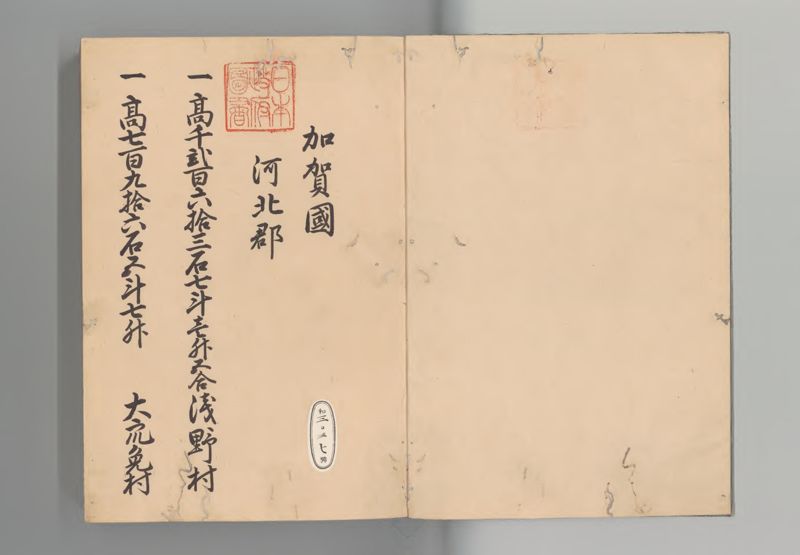 加賀國
河北郡
日本
政府
圖書
一高千弐百六拾三石七斗壱升五合浅野村
一高七百九拾六石五斗七升 大衆免村